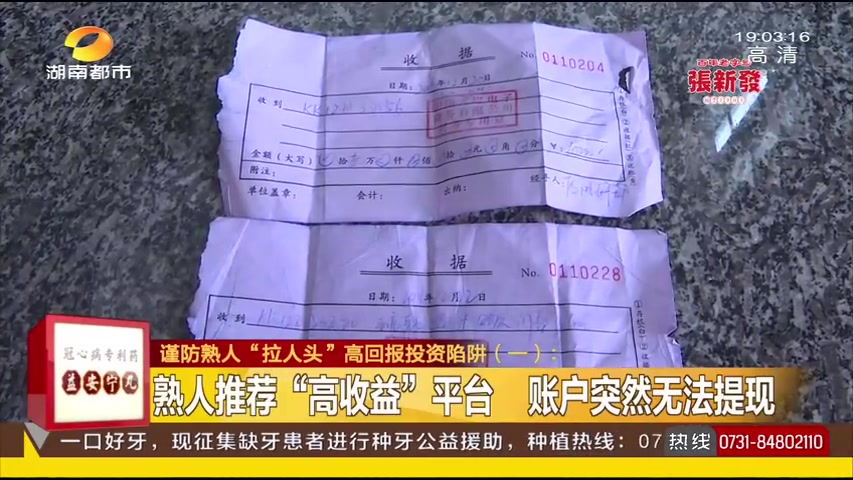 湖南都市
19:03:16
高清
百年老字号
張新發
收 据
No 0110204
日期: 年 月 日
收到
金额（大写） 拾 万 仟 佰 拾 元 角 分 ¥:
附注:
单位盖章: 会计: 出纳: 经手人:
收 据
No. 0110228
日期: 年 月 日
收到
冠心病专利药
益安宁丸
谨防熟人“拉人头”高回报投资陷阱（一）:
熟人推荐“高收益”平台 账户突然无法提现
一口好牙，现征集缺牙患者进行种牙公益援助，种植热线：07
热线 0731-84802110